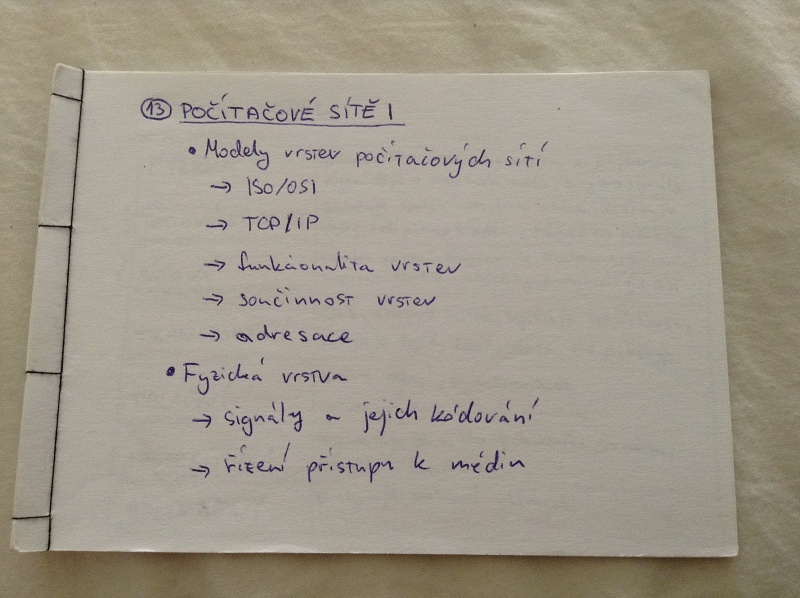 13 POČÍTAČOVÉ SÍTĚ I
• Modely vrstev počítačových sítí
→ ISO/OSI
→ TCP/IP
→ funkcionalita vrstev
→ součinnost vrstev
→ adresace
• Fyzická vrstva
→ signály a jejich kódování
→ řízení přístupu k médiu